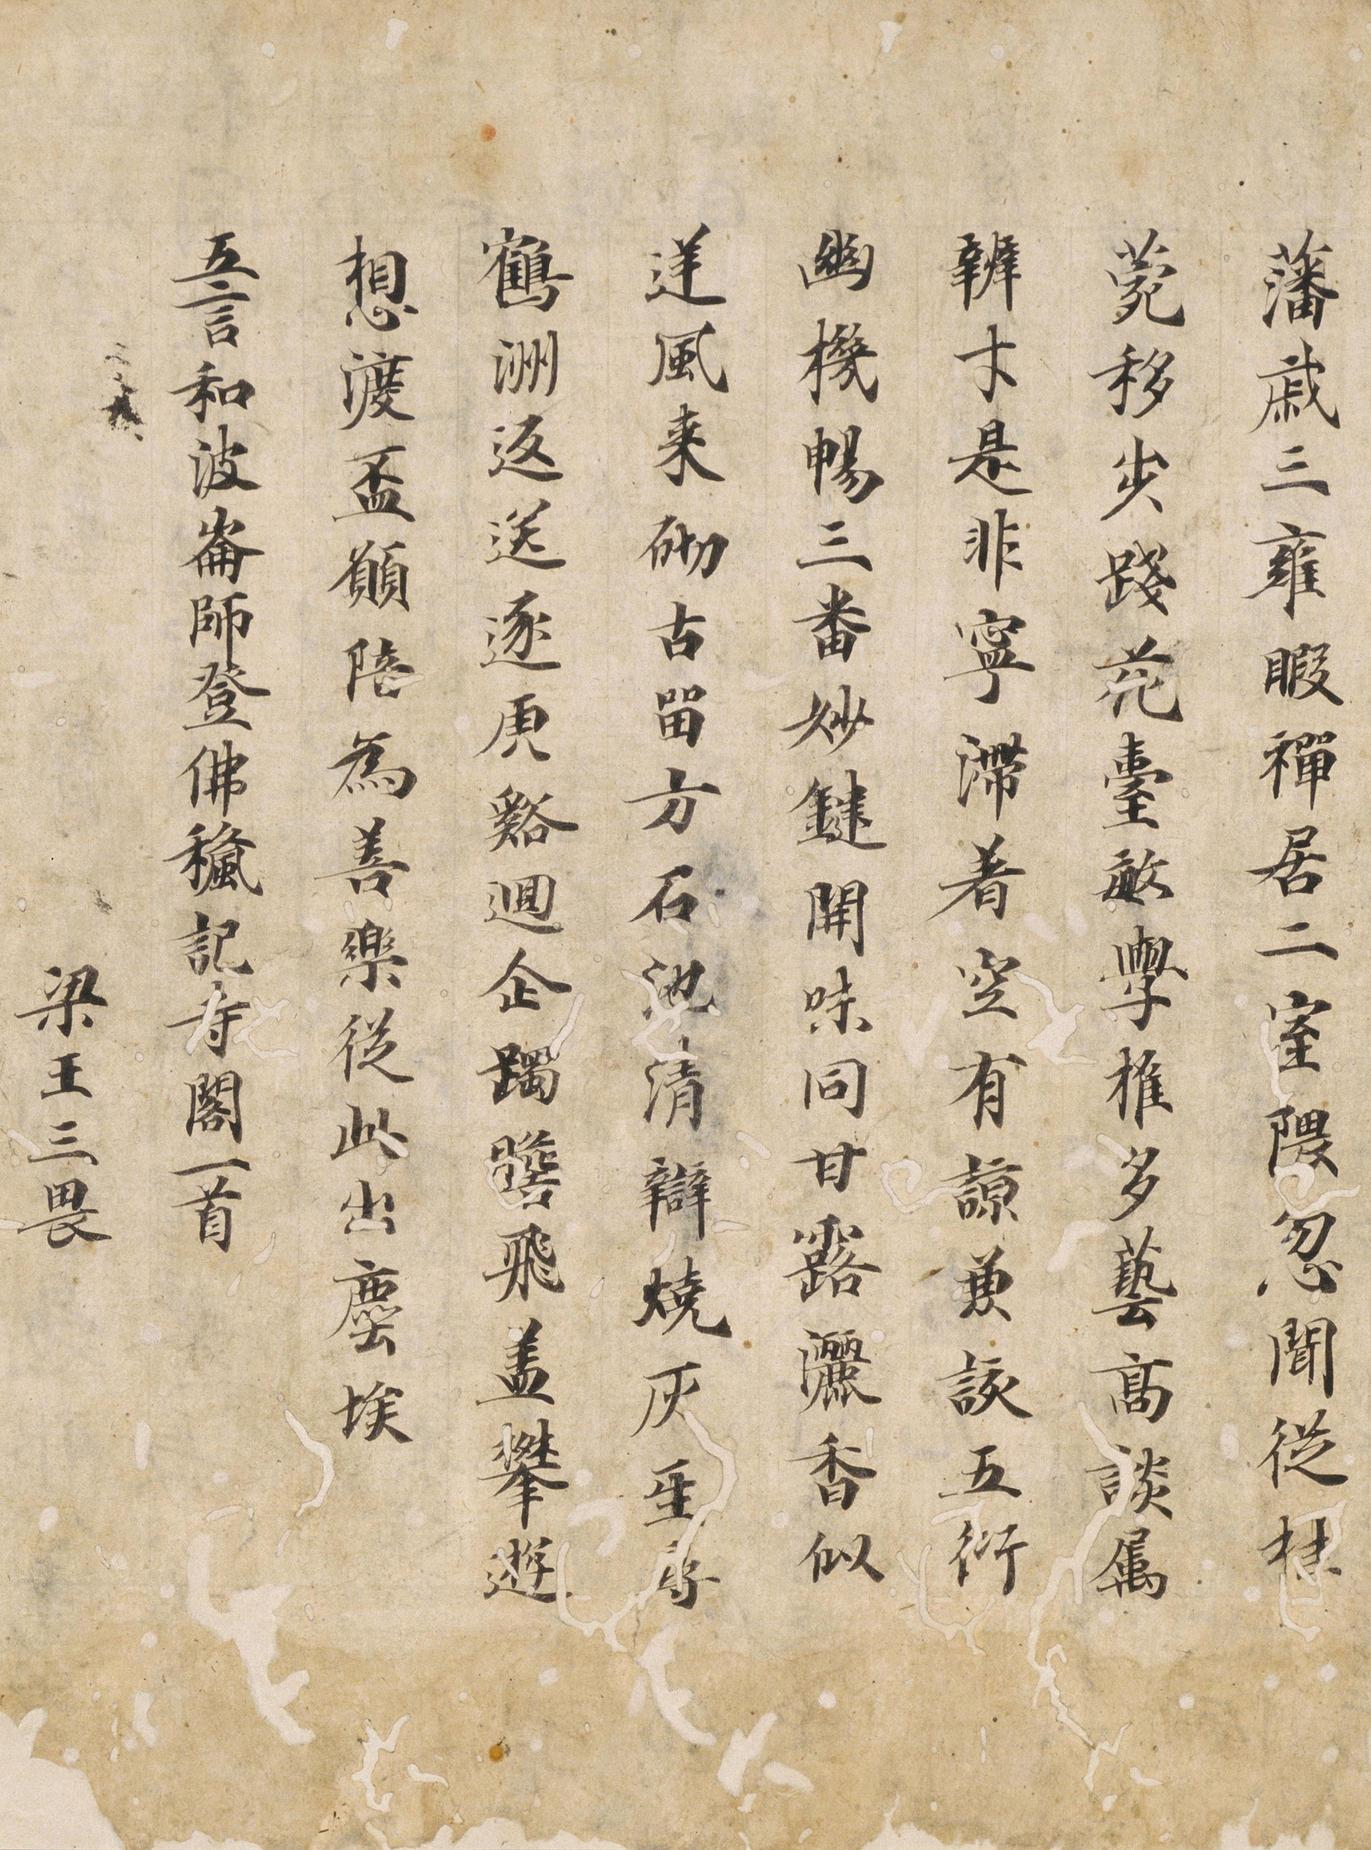 藩戚三雍暇禪居二室隈忽聞從桂
菀移步踐花臺敏學推多藝高談屬
辨才是非寧滯著空有諒兼該五衍
幽機暢三番妙鍵開味同甘露灑香似
逆風来砌古留方石池清辯燒灰垂
鶴洲返送逐庾谿迴企躅瞻飛盖攀遊
想渡盃願陪為善樂從此出塵埃
五言和波崙師登佛窺記寺閣一首
梁王三畏